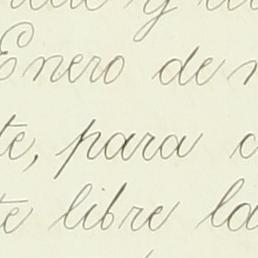 y
Enero de
te, para c
te libre la